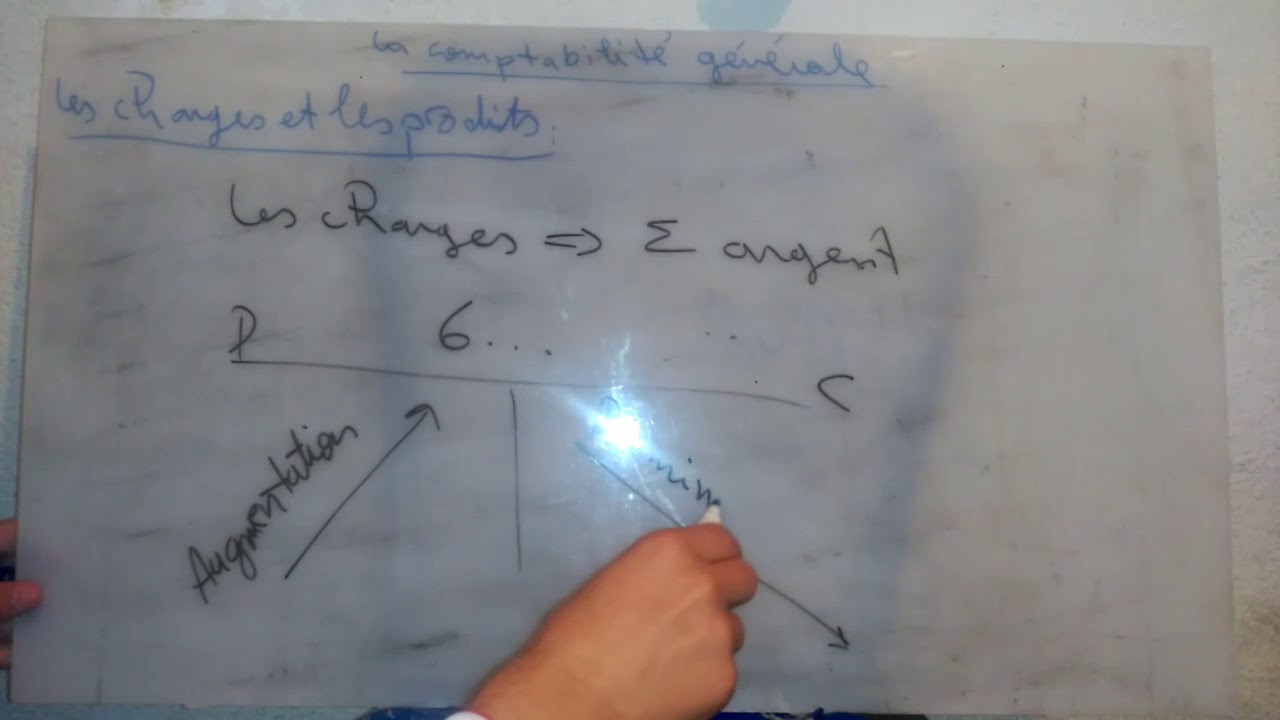 la comptabilité générale
les charges et les prodits:
les charges => Σ argent
D 6... .. C
Augmentation